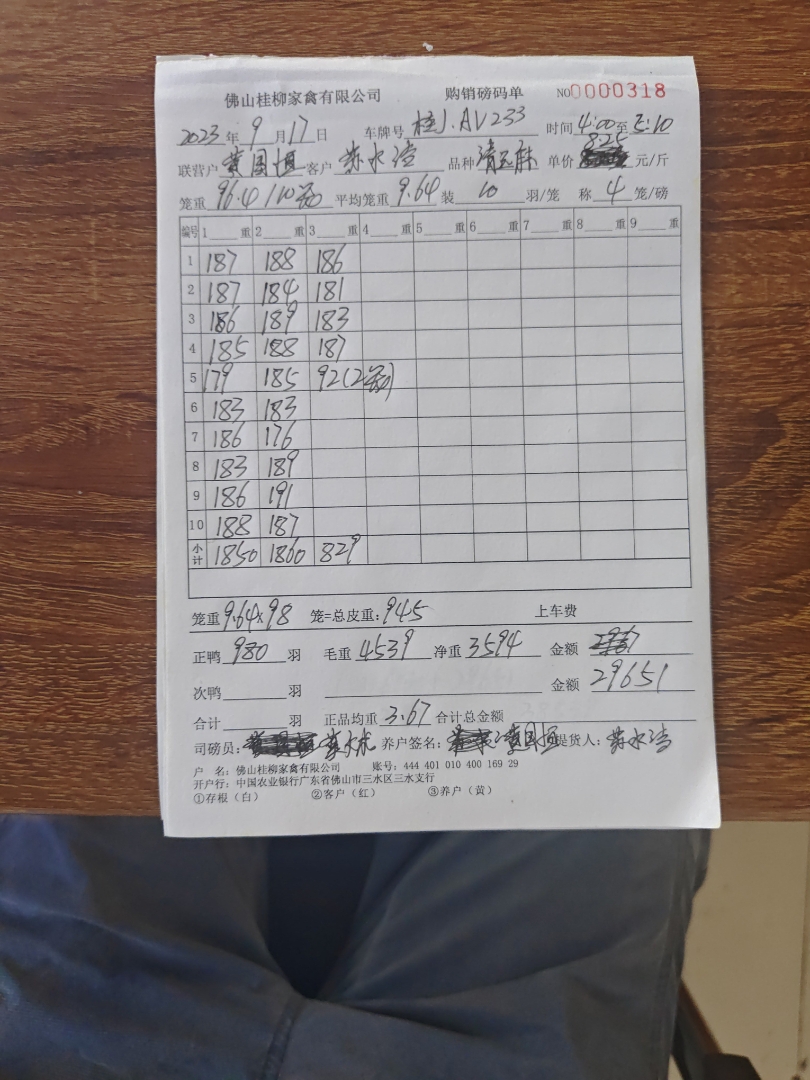 佛山桂柳家禽有限公司 购销磅码单 NO0000318
2023年9月17日 车牌号 桂J.AV233 时间 4:00至5:10
联营户 黄国恒 客户 苏水洁 品种 清远麻 单价 8.25 元/斤
笼重 96.4/10笼 平均笼重 9.64 装 10 羽/笼 称 4 笼/磅
编号 1 重 2 重 3 重 4 重 5 重 6 重 7 重 8 重 9 重
1 187 188 186
2 187 184 181
3 186 189 183
4 185 188 187
5 179 185 92(2笼)
6 183 183
7 186 176
8 183 189
9 186 191
10 188 187
小计 1850 1860 829
笼重 9.64×98 笼=总皮重: 945 上车费
正鸭 980 羽 毛重 4539 净重 3594 金额
次鸭 羽 金额 29651
合计 羽 正品均重 3.67 合计总金额
司磅员: 养户签名: 黄国恒 提货人: 苏水洁
户 名: 佛山桂柳家禽有限公司 账号: 444 401 010 400 169 29
开户行: 中国农业银行广东省佛山市三水区三水支行
①存根(白) ②客户(红) ③养户(黄)